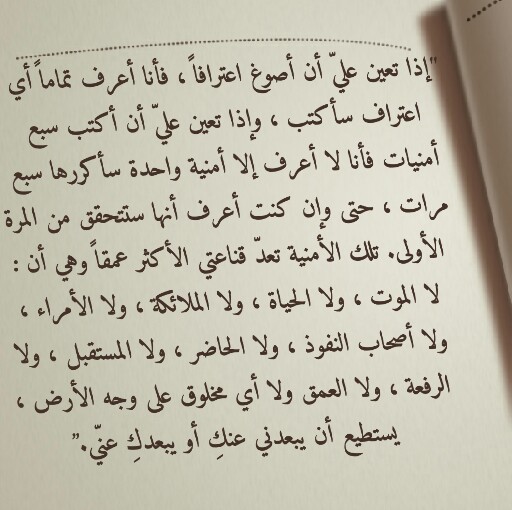 "إذا تعين عليّ أن أصوغ اعترافاً ، فأنا أعرف تماماً أي
اعتراف سأكتب ، وإذا تعين عليّ أن أكتب سبع
أمنيات فأنا لا أعرف إلا أمنية واحدة سأكررها سبع
مرات ، حتى وإن كنت أعرف أنها ستتحقق من المرة
الأولى. تلك الأمنية تعدّ قناعتي الأكثر عمقاً وهي أن :
لا الموت ، ولا الحياة ، ولا الملائكة ، ولا الأمراء ،
ولا أصحاب النفوذ ، ولا الحاضر ، ولا المستقبل ، ولا
الرفعة ، ولا العمق ولا أي مخلوق على وجه الأرض ،
يستطيع أن يبعدني عنكِ أو يبعدكِ عنيّ."